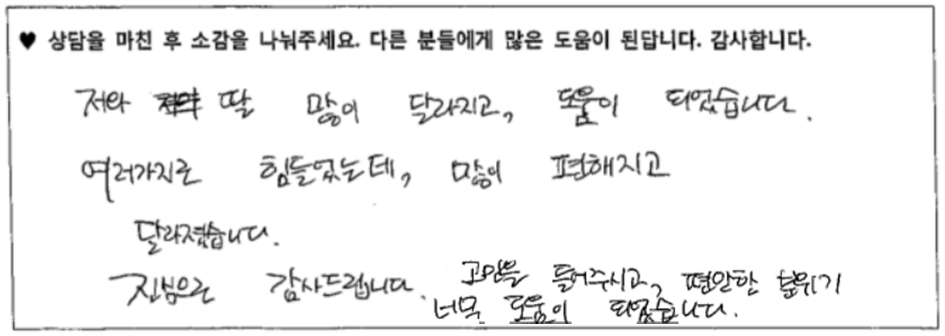 ♥ 상담을 마친 후 소감을 나눠주세요. 다른 분들에게 많은 도움이 된답니다. 감사합니다.
저와 딸 많이 달라지고, 도움이 되었습니다.
여러가지로 힘들었는데, 많이 편해지고
달라졌습니다.
진심으로 감사드립니다. 고민을 들어주시고, 편안한 분위기
너무 도움이 되었습니다.